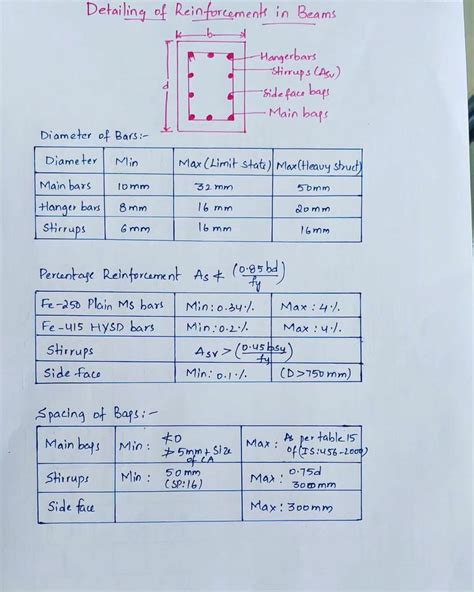 Detailing of Reinforcements in Beams
b
d
Hangerbars
Stirrups (Asv)
Sideface bars
Main bars
Diameter of Bars:-
Diameter Min Max(Limit state) Max(Heavy struct)
Main bars 10mm 32 mm 50mm
Hanger bars 8mm 16 mm 20mm
Stirrups 6mm 16mm 16mm
Percentage Reinforcement As ≮ (0.85bd/fy)
Fe-250 Plain MS bars Min:0.34% Max:4%
Fe-415 HYSD bars Min:0.2% Max:4%
Stirrups Asv > (0.45bsv/fy)
Side Face Min: 0.1% (D>750mm)
Spacing of Bars:-
Main bars Min: ≮D ≯5mm+size of CA Max: As per table 15 of (IS:456-2000)
Stirrups Min: 50mm (SP:16) Max: 0.75d 3000mm
Side face Max: 300mm